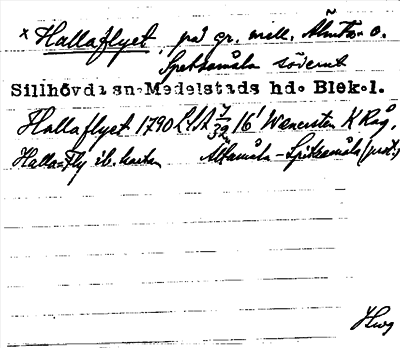 x Hallaflyet, på gr. mell. Älmta o.
Spetsamåla söderut
Sillhövda sn. Medelstads hd. Blek. l.
Hallaflyet 1790 LSA 7/39 16' Wenersten K Råg.
Halla-Fly ib. kartan Altamåla - Spitsamåla (prot.)
Hwg